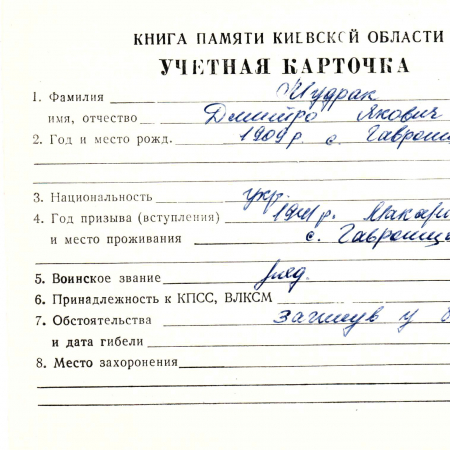 КНИГА ПАМЯТИ КИЕВСКОЙ ОБЛАСТИ
УЧЕТНАЯ КАРТОЧКА
1. Фамилия Чудрак
имя, отчество Дмитро Якович
2. Год и место рожд. 1909 р с.
3. Национальность укр.
4. Год призыва (вступления) 1941 р.
и место проживания с.
5. Воинское звание ряд.
6. Принадлежность к КПСС, ВЛКСМ
7. Обстоятельства загинув у
и дата гибели
8. Место захоронения